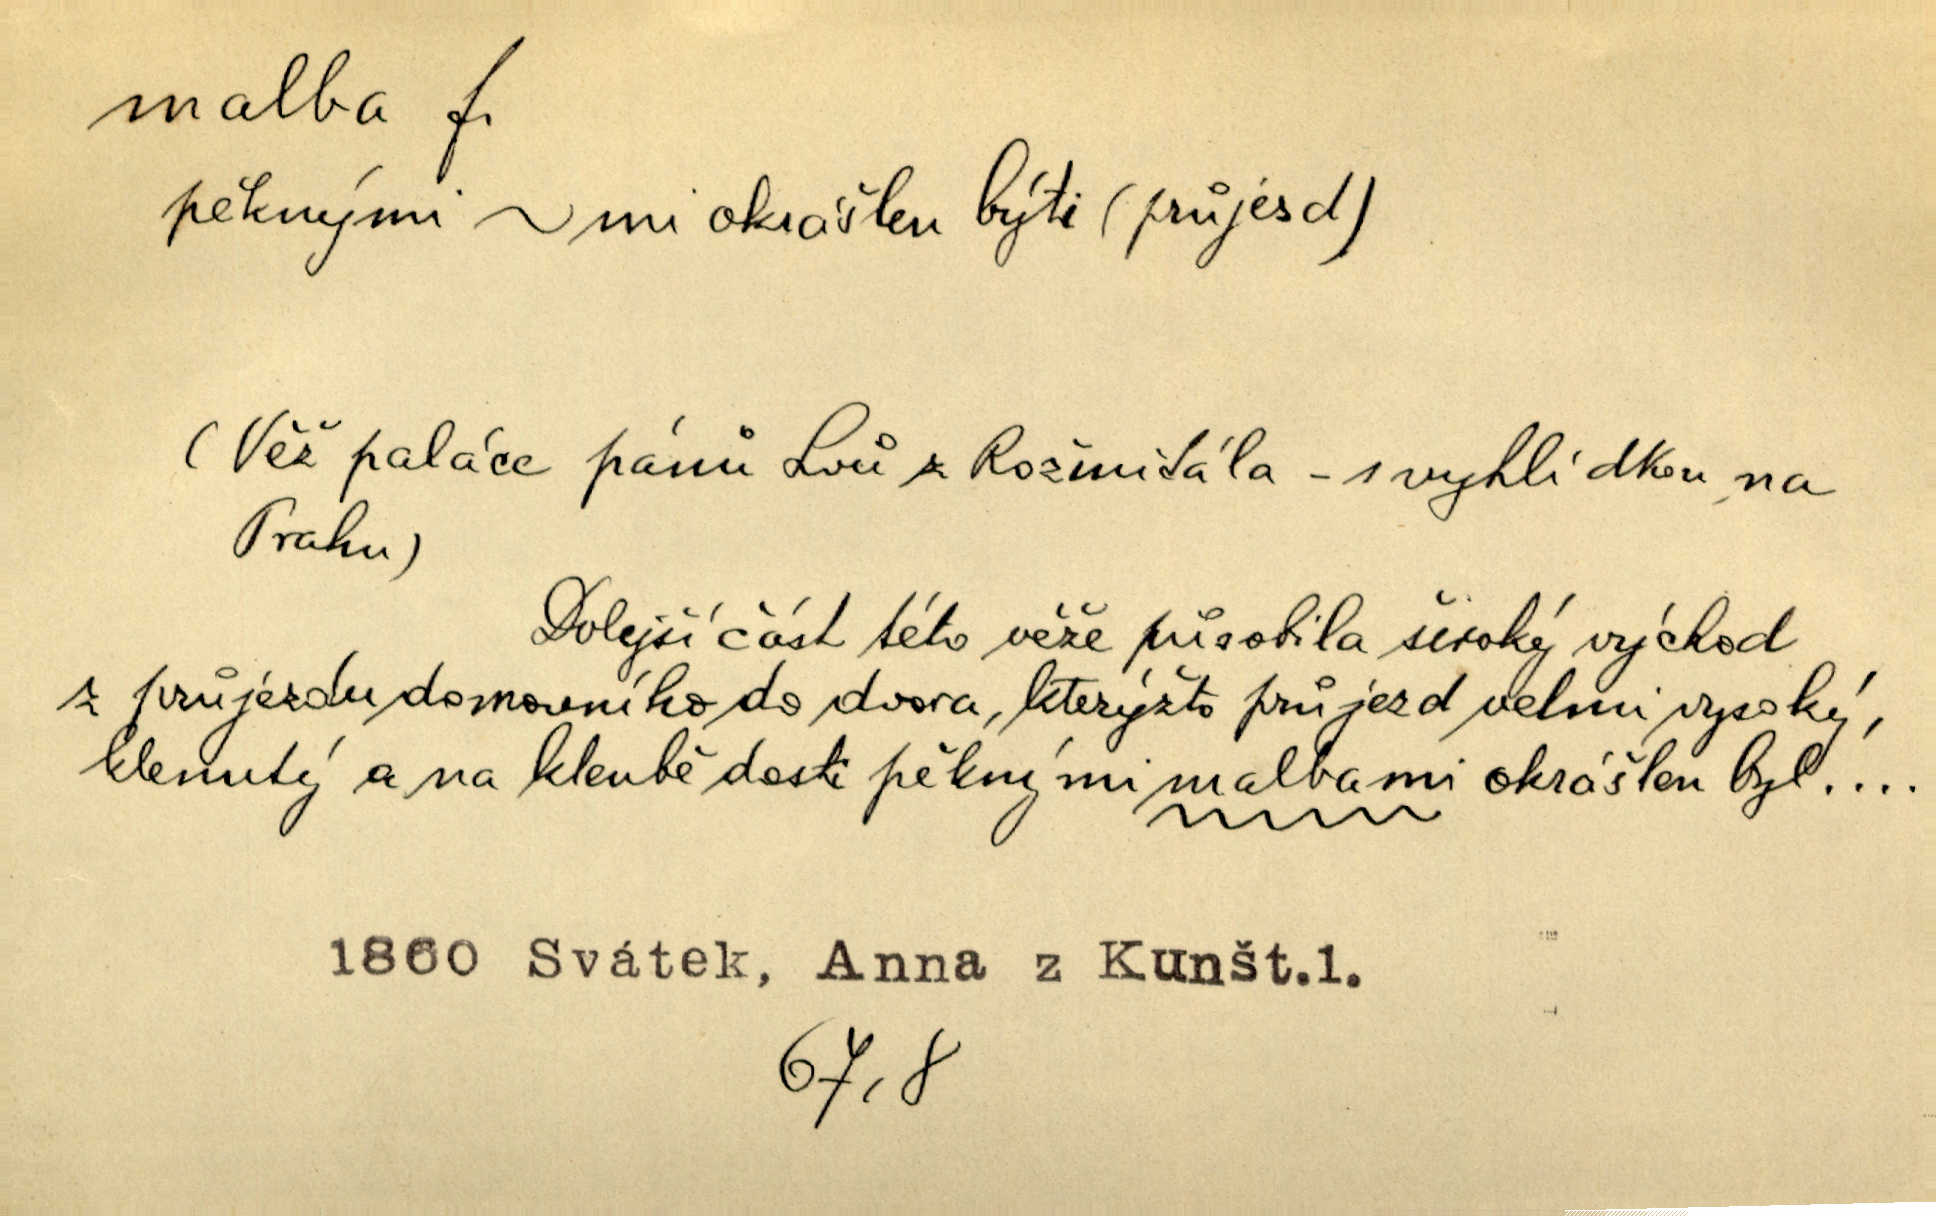 malba f.
pěknými ~mi okrášlen býti (průjezd)
(Věž paláce pánů Lvů z Rožmitála - s vyhlídkou na
Prahu)
Dolejší část této věže působila široký východ
z průjezdu domovního do dvora, kterýžto průjezd velmi vysoký,
klenutý a na klenbě dosti pěknými malbami okrášlen byl....
1860 Svátek, Anna z Kunšt.1.
67,8